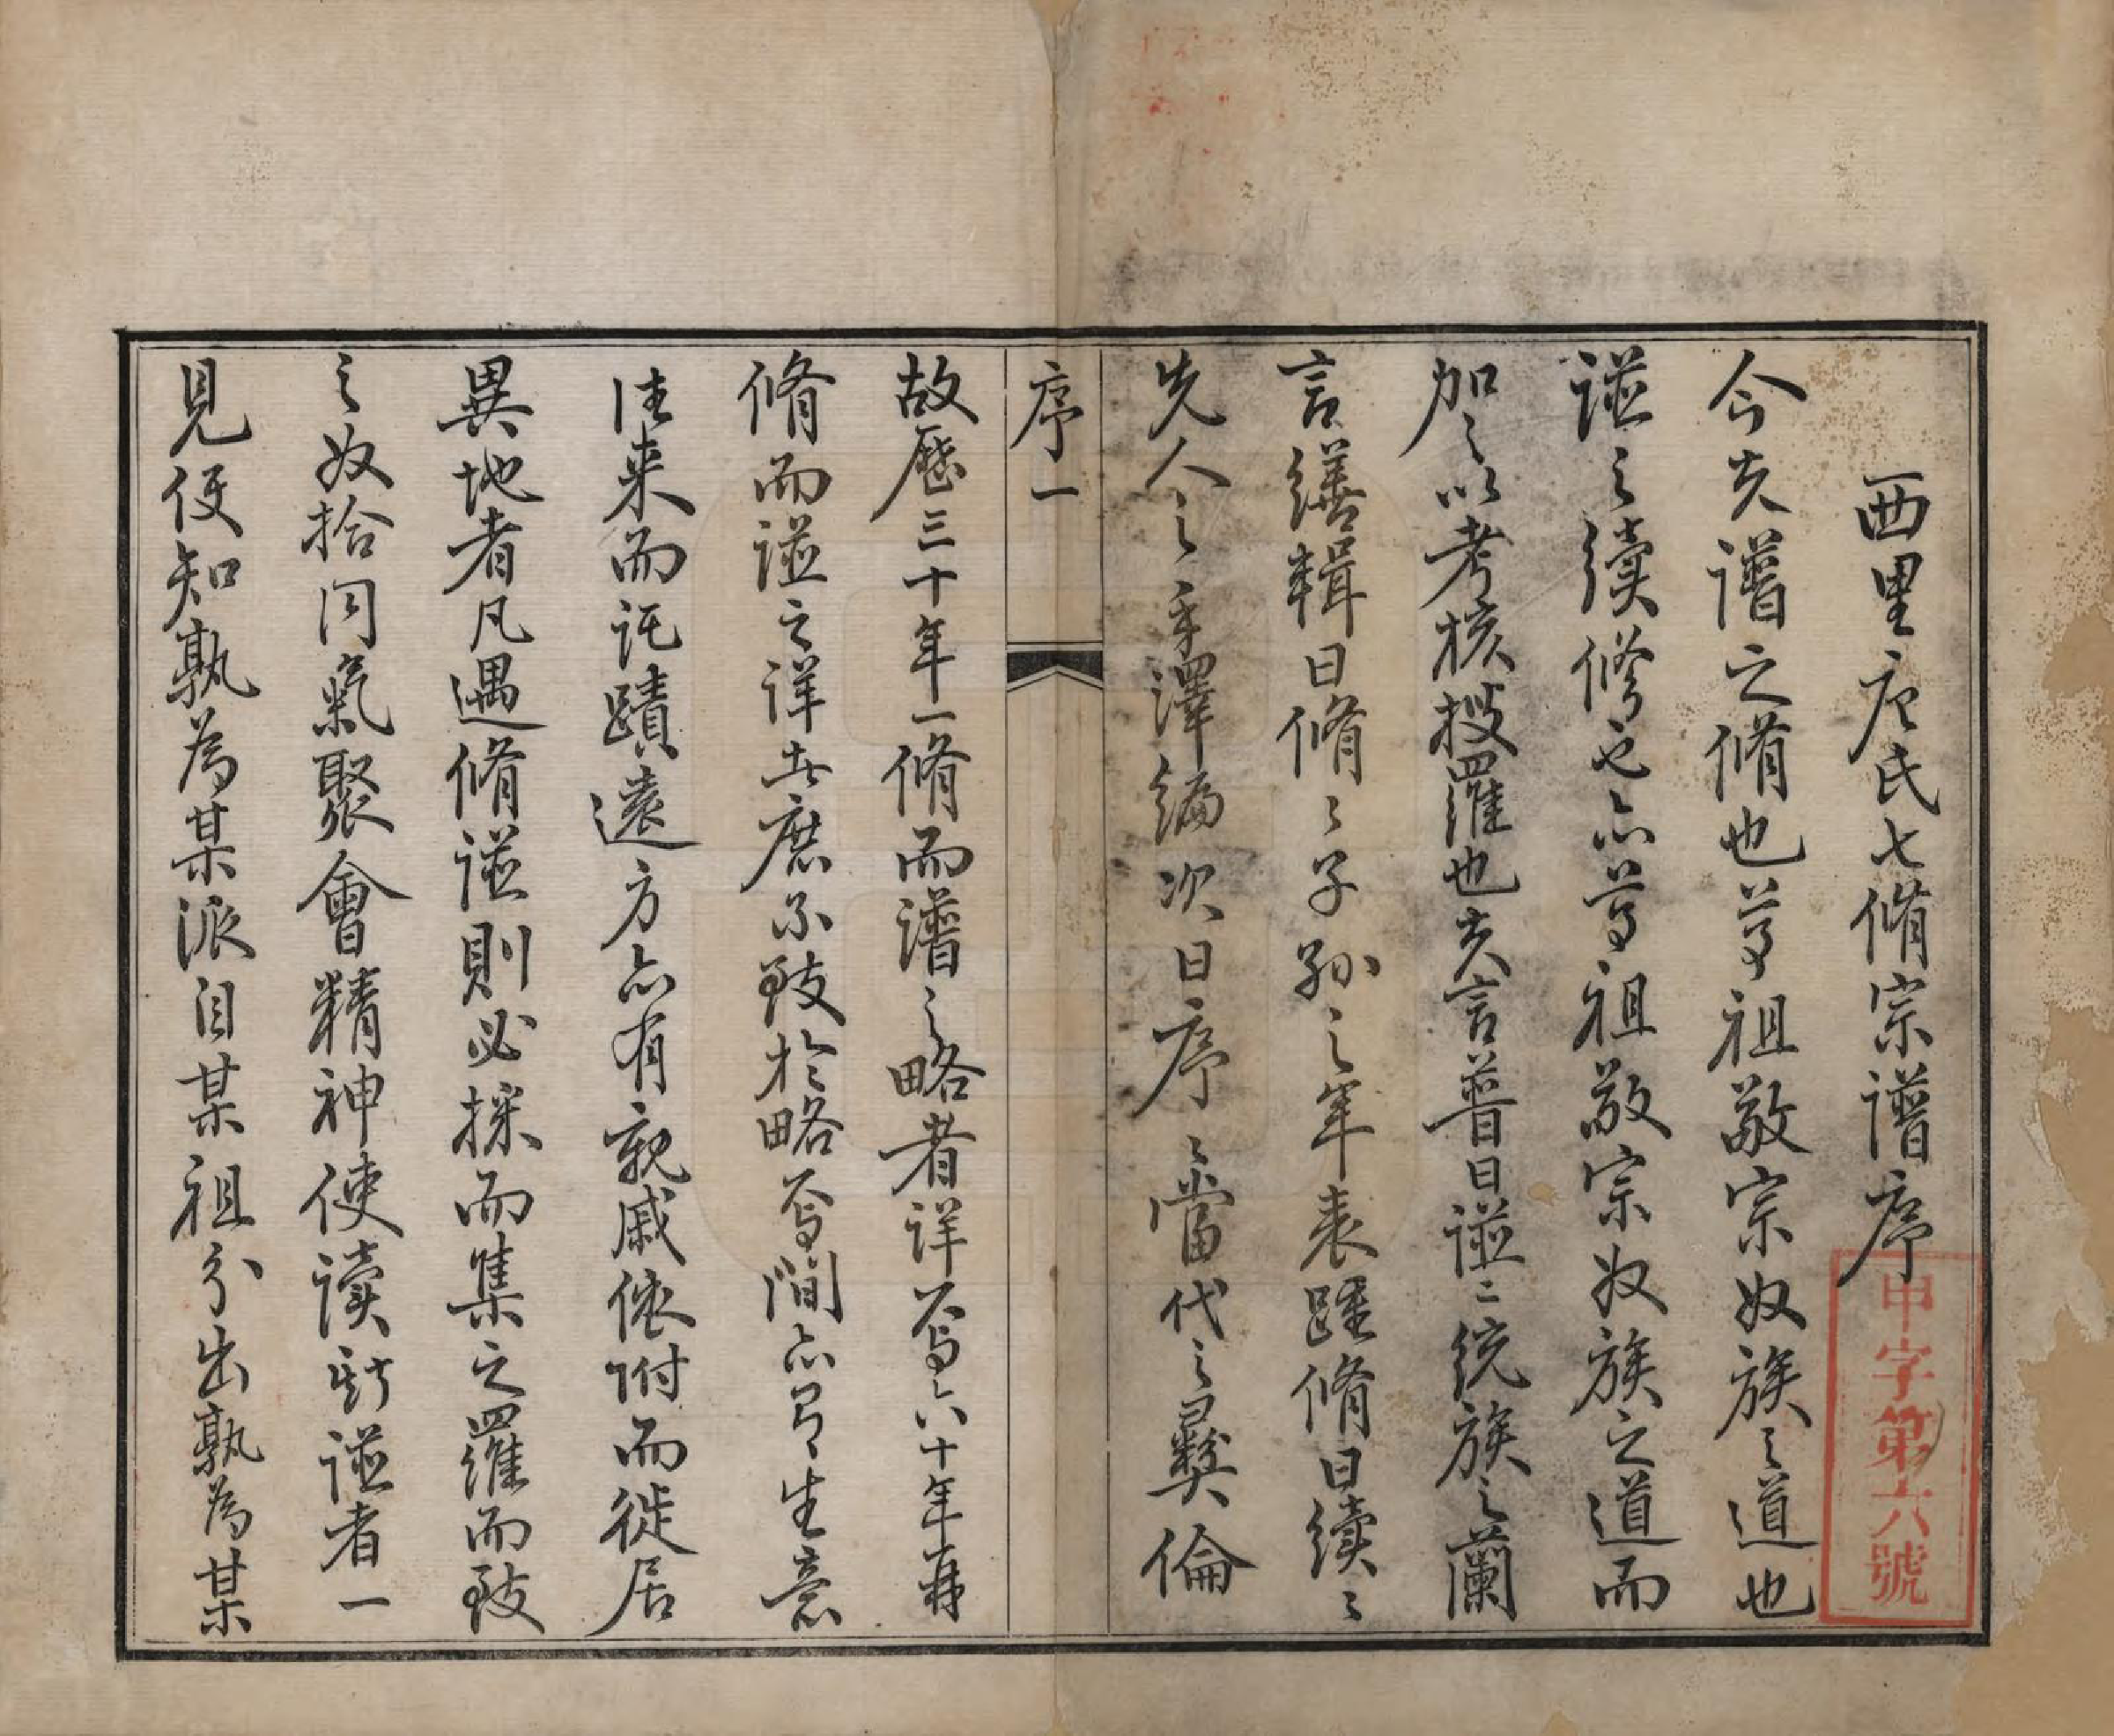 西里唐氏七脩宗譜序
今夫譜之脩也尊祖敬宗收族之道也
諡之續修也亦尊祖敬宗收族之道而
加之以考核搜羅也夫言普曰諡〻統族之蘭
言繕輯曰脩〻子孫之年表踵脩曰續〻
先人之手澤編次曰序〻當代之彝倫
序一
故歷三十年一脩而譜之略者詳焉六十年再
脩而諡之詳其庶不致於略焉間亦有生意
往来而託蹟遠方亦有親戚依附而徙居
異地者凡遇脩諡則必採而集之羅而致
之收拾同氣聚會精神使讀斯諡者一
見便知孰為某派自某祖分出孰為某
申字第六號